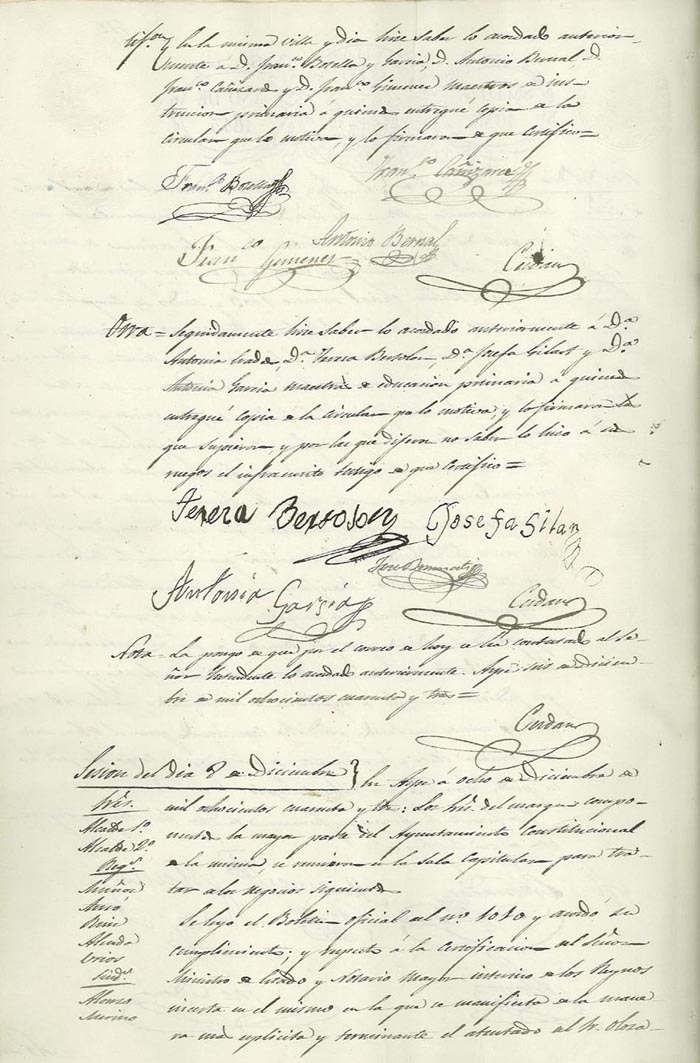 y en la misma villa y dia hice saber lo acordado anterior-
mente a D. Franco. Botella y Garcia, D. Antonio Bernal D.
Franco Cañizares y D. Franco Gimenez maestros de ins-
truccion primaria á quienes entregué copia de la
circular que lo motiva y lo firmaron de que certifico=
Franco Botella
Franco Cañizares
Franco Gimenez
Antonio Bernal
Cerdan
Otra = Seguidamente hice saber lo acordado anteriormente á Da.
Antonia Da. Teresa Bertolon, Da. Josefa Gilart y Da.
Antonia Garcia maestras de educación primaria a quienes
entregué copia de la circular que lo motiva, y lo firmaron las
que supieron y por las que dijeron no saber lo hizo á sus
ruegos el infraescrito testigo de que certifico=
Teresa Bertolon
Josefa Gilar
Antonia Garsia
Cerdan
Nota = La pongo de que por el correo de hoy se ha contestado al Se-
ñor Intendente lo acordado anteriormente. Aspe seis de Diciem-
bre de mil ochocientos cuarenta y tres=
Cerdan
Sesion del dia 8 de Diciembre } En Aspe á ocho de Diciembre de
Sres. mil ochocientos cuarenta y tres: Los Sres. del margen compo-
Alcalde 1º. nentes la mayor parte del Ayuntamiento Constitucional
Alcalde 2º. de la misma, se reunieron en la Sala Capitular para tra-
Regs. tar de los negocios siguientes
Muñoz
Miró Se leyo el Boletin oficial del nº. 1010 y acordó su
Almela cumplimiento; y respecto á la Certificacion del Señor
Urios Ministro de Estado y Notario Mayor interino de los Reynos
Sinds. inserta en el mismo en la que se manifiesta de la mane-
Alonso ra mas esplicita y terminante el atentado del Sr. Oloza-
Merino